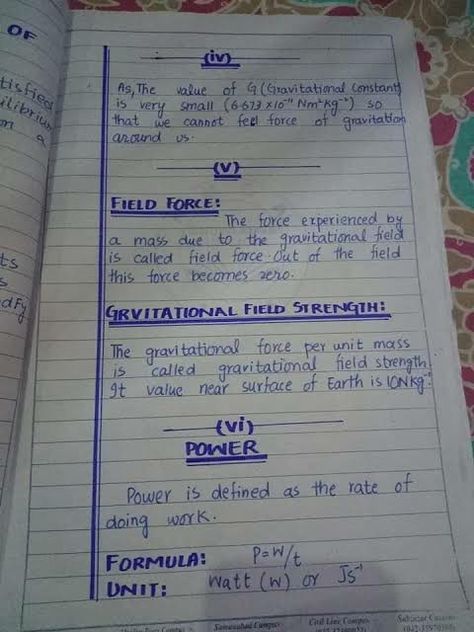 OF
tisfied
uilibrium
on a
ts
s
dFy
(iv)
As, The value of G (Gravitational Constant)
is very small (6.673 x10⁻¹¹ Nm²kg⁻²) so
that we cannot feel force of gravitation
around us.
(v)
FIELD FORCE:
The force experienced by
a mass due to the gravitational field
is called field force. Out of the field
this force becomes zero.
GRVITATIONAL FIELD STRENGTH:
The gravitational force per unit mass
is called gravitational field strength.
It value near surface of Earth is 10Nkg⁻¹.
(vi)
POWER
Power is defined as the rate of
doing work.
FORMULA: P=W/t
UNIT: Watt (W) or Js⁻¹
Samanabad Campus Civil Line Campus